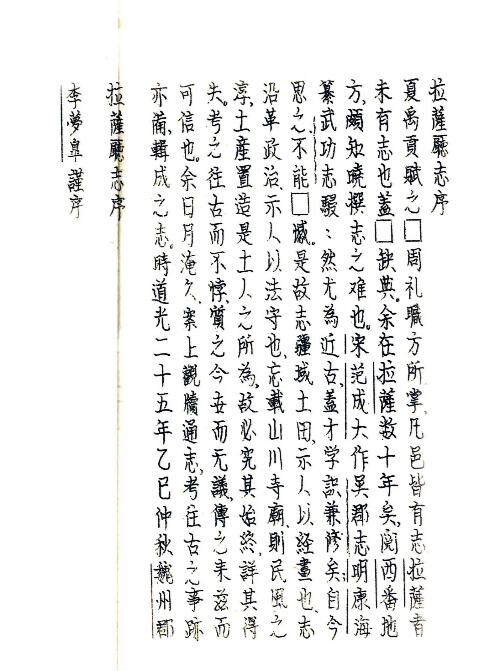 拉薩廳志序
夏禹貢賦之□周礼職方所掌凡邑皆有志拉薩者
未有志也蓋□缺典。余在拉薩数十年矣。閱西番地
方，頗知曉撰志之难也。宋范成大作吴郡志明康海
纂武功志駸：然尤為近古，蓋才学識兼修矣；自今
思之不能□憾。是故志疆域土田、示人以経畫也、志
沿革政治、示人以法守也、志載山川寺廟、則民風之
淳，土産置造是土人之所為，故必究其始終，詳其得
失。考之往古而不悖，質之今世而无議，傳之来茲而
可信也。余日月淹久，案上觀牘通志，考往古之事跡
亦備，輯成之志。時道光二十五年乙巳仲秋魏州郡
拉薩廳志序
李夢皐謹序